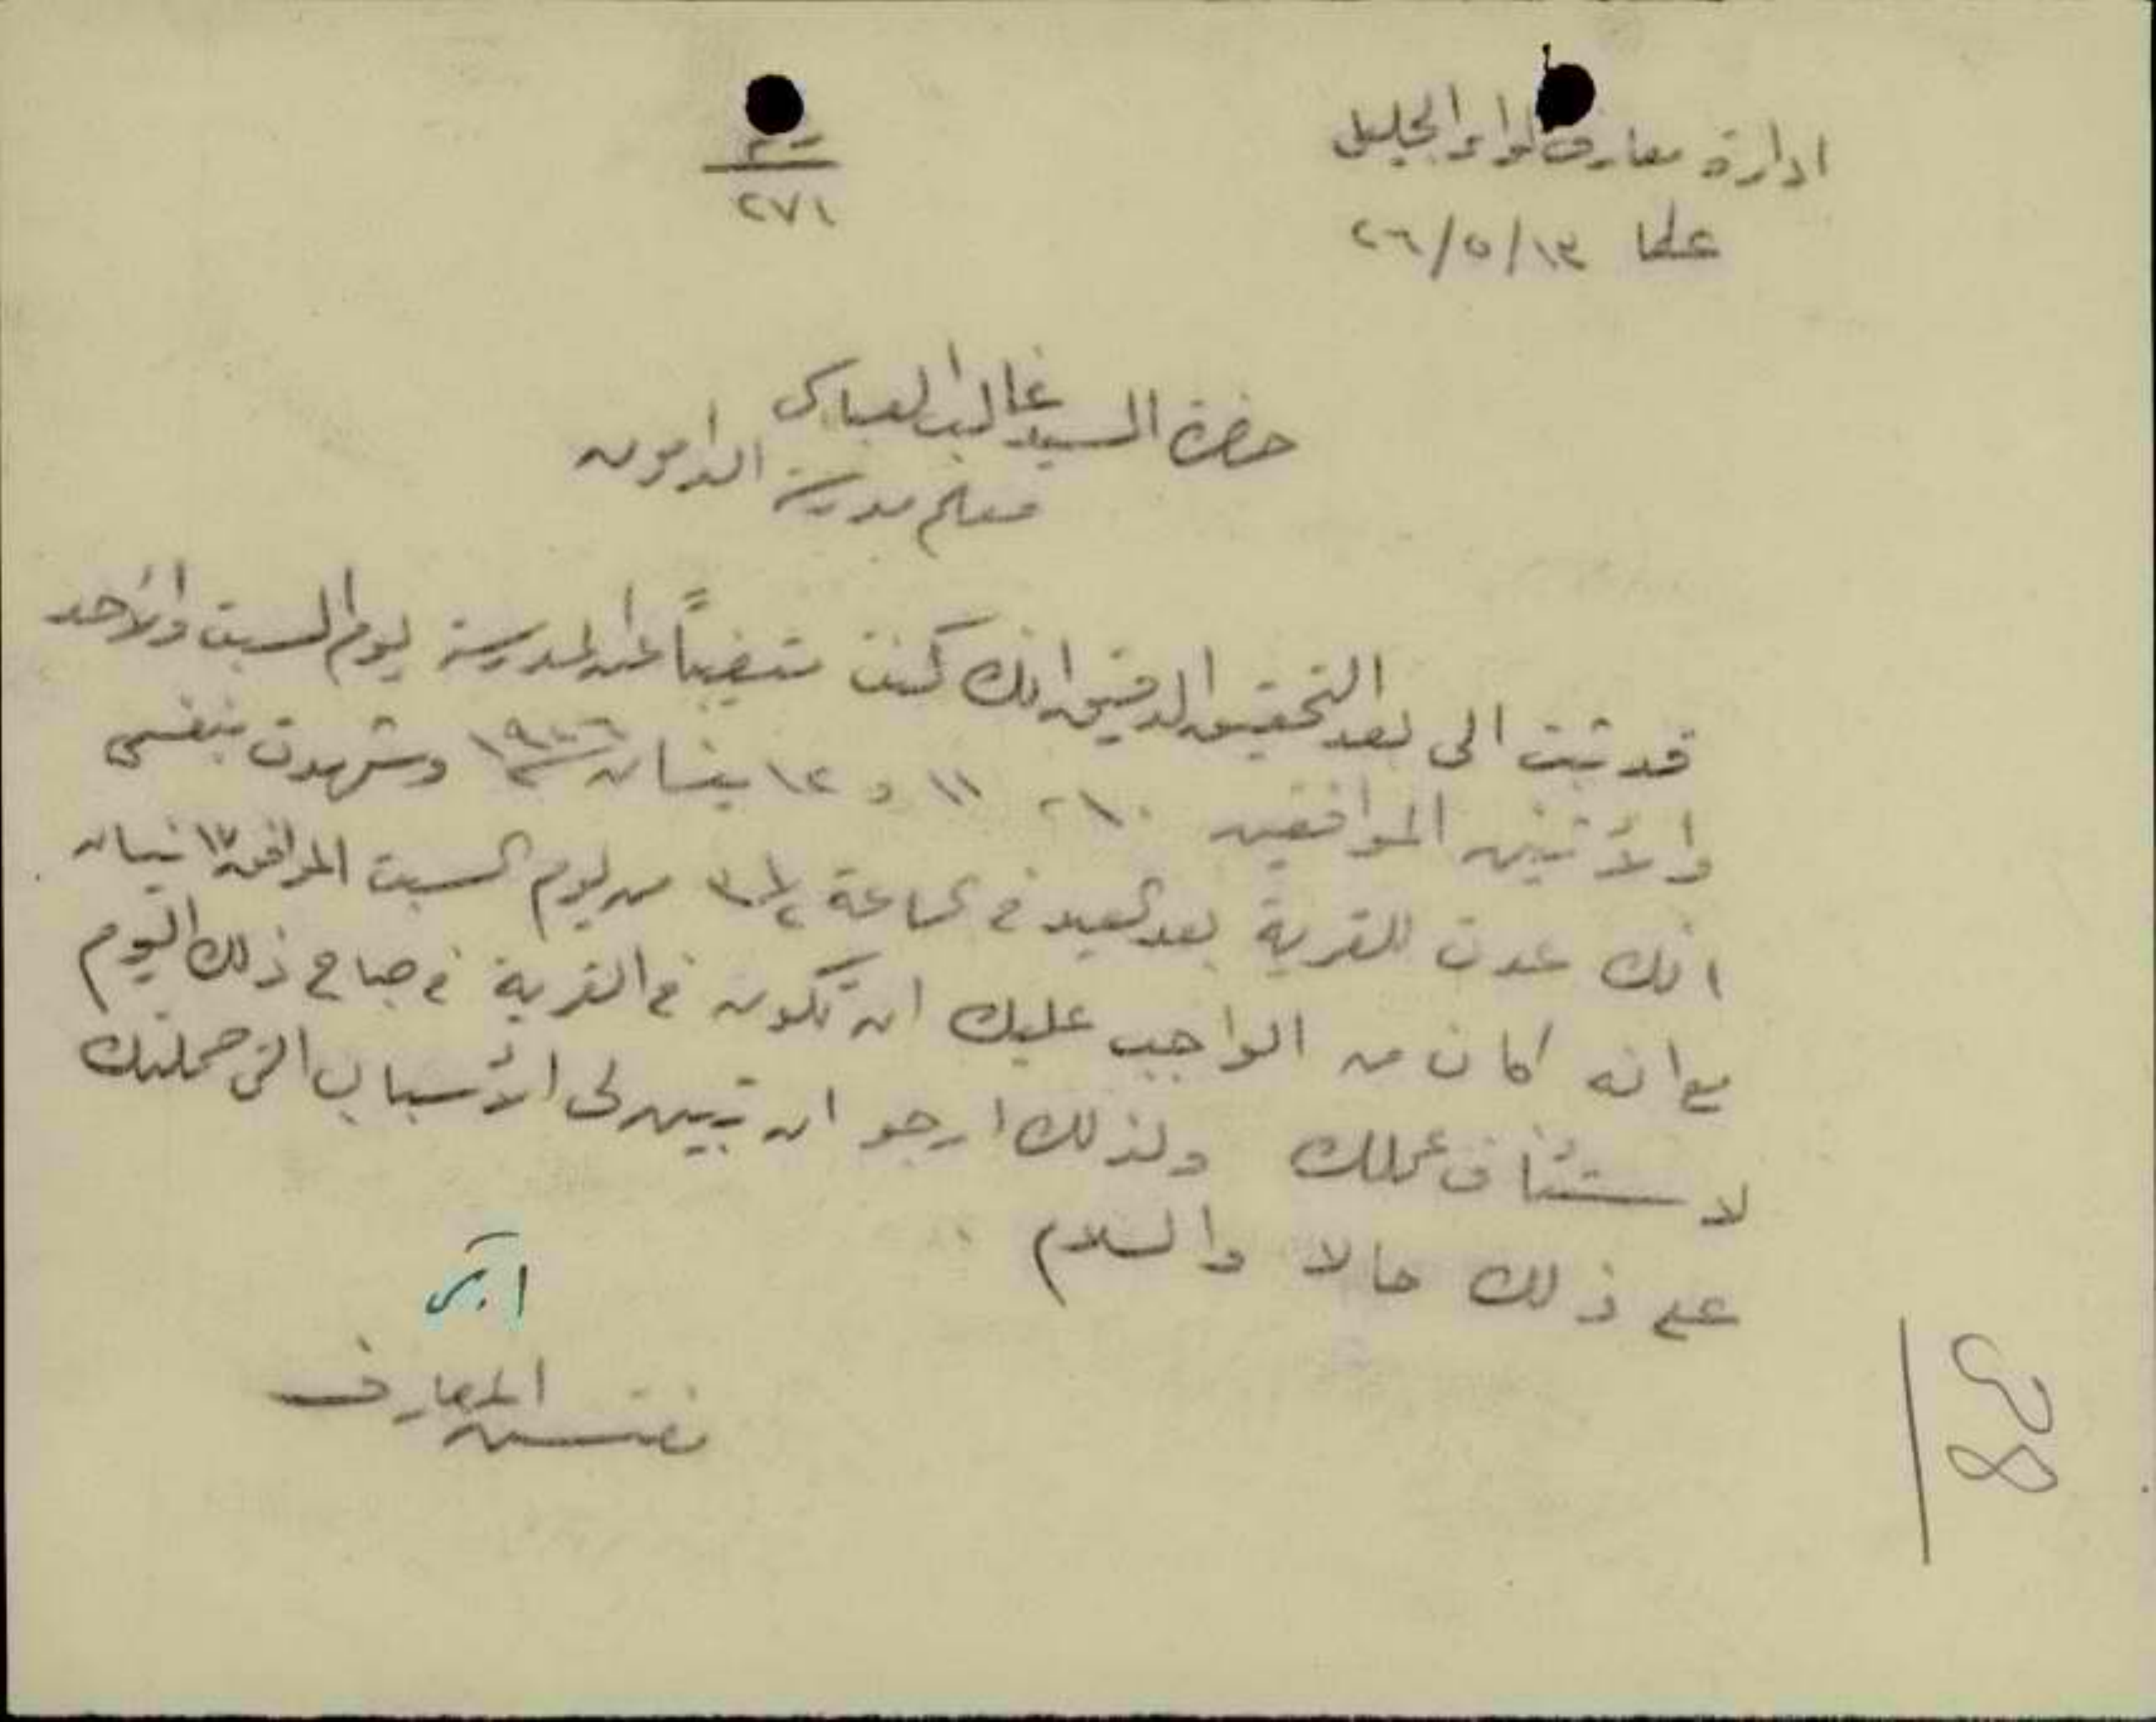 ادارة معارف لواء الجليل
عكا ١٣/٥/٢٦
٢٧١
حضرة السيد غالب العباسي
معلم مدرسة الدامون
قد ثبت الي بعد التحقيق الدقيق انك كنت متغيباً عن المدرسة يوم السبت والأحد
والأثنين الموافقين ١٠، ١١ و ١٢ نيسان ١٩٢٦ وشهدت بنفسي
انك عدت للقرية بعد العيد في الساعة من يوم السبت الموافق ١٧ نيسان
مع انه كان من الواجب عليك ان تكون في القرية في صباح ذلك اليوم
لاستئناف عملك ولذلك ارجو ان تبين لي الأسباب التي حملتك
على ذلك حالا والسلام
مفتش المعارف
38